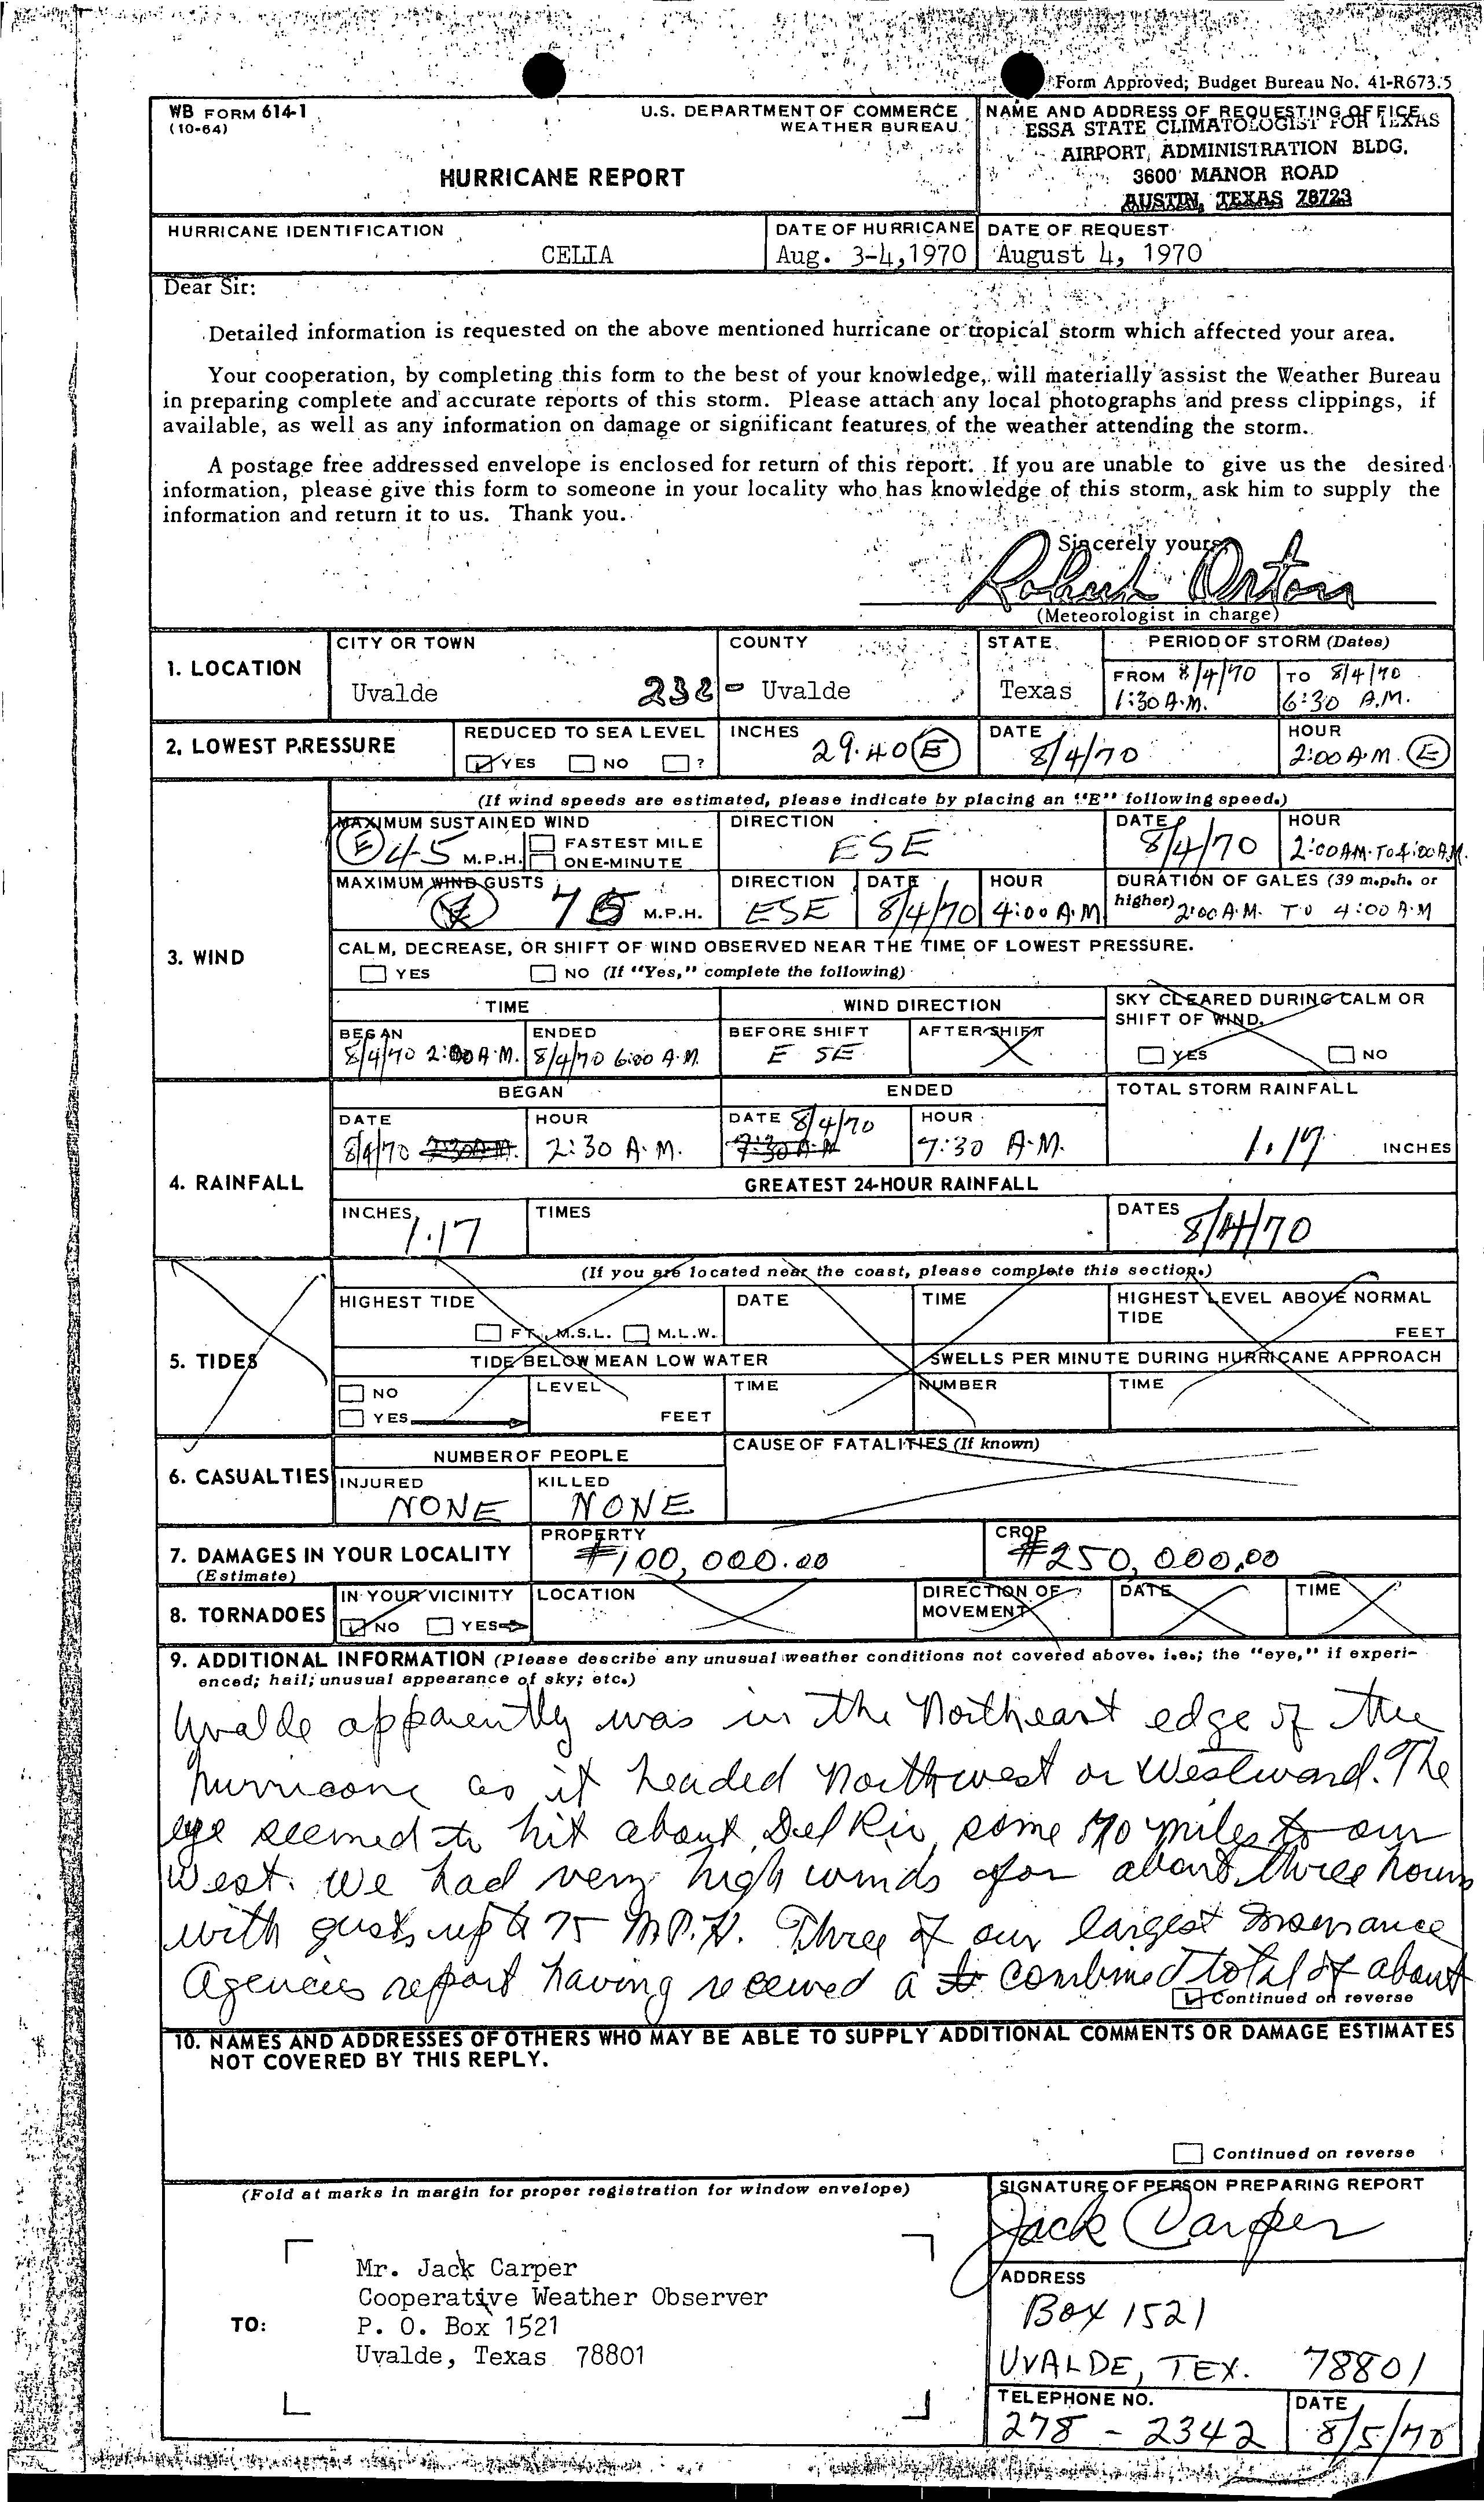 Form Approved; Budget Bureau No. 41-R673.5
WB FORM 614-1
(10-64)
U.S. DEPARTMENT OF COMMERCE
WEATHER BUREAU
HURRICANE REPORT
NAME AND ADDRESS OF REQUESTING OFFICE
ESSA STATE CLIMATOLOGIST FOR TEXAS
AIRPORT ADMINISTRATION BLDG.
3600 MANOR ROAD
AUSTIN, TEXAS 78723
HURRICANE IDENTIFICATION
CELIA
DATE OF HURRICANE
Aug. 3-4,1970
DATE OF REQUEST
August 4, 1970
Dear Sir:
Detailed information is requested on the above mentioned hurricane or tropical storm which affected your area.
Your cooperation, by completing this form to the best of your knowledge, will materially assist the Weather Bureau
in preparing complete and accurate reports of this storm. Please attach any local photographs and press clippings, if
available, as well as any information on damage or significant features of the weather attending the storm.
A postage free addressed envelope is enclosed for return of this report. If you are unable to give us the desired
information, please give this form to someone in your locality who has knowledge of this storm, ask him to supply the
information and return it to us. Thank you.
Sincerely yours,
Robert Orton
(Meteorologist in charge)
1. LOCATION
CITY OR TOWN
Uvalde
COUNTY
232 - Uvalde
STATE
Texas
PERIOD OF STORM (Dates)
FROM 8/4/70
1:30 A.M.
TO 8/4/70
6:30 A.M.
2. LOWEST PRESSURE
REDUCED TO SEA LEVEL
YES NO ?
INCHES
29.40 E
DATE
8/4/70
HOUR
2:00 A.M. E
3. WIND
(If wind speeds are estimated, please indicate by placing an "E" following speed.)
MAXIMUM SUSTAINED WIND
E 45 M.P.H.
FASTEST MILE
ONE-MINUTE
DIRECTION
ESE
DATE
8/4/70
HOUR
2:00 AM. TO 4:00 A.M.
MAXIMUM WIND GUSTS
75 M.P.H.
DIRECTION
ESE
DATE
8/4/70
HOUR
4:00 A.M
DURATION OF GALES (39 m.p.h. or
higher) 2:00 A.M. TO 4:00 A.M
CALM, DECREASE, OR SHIFT OF WIND OBSERVED NEAR THE TIME OF LOWEST PRESSURE.
YES NO (If "Yes," complete the following)
TIME
WIND DIRECTION
SKY CLEARED DURING CALM OR
SHIFT OF WIND.
YES NO
BEGAN
8/4/70 2:00 A.M.
ENDED
8/4/70 6:00 A.M.
BEFORE SHIFT
E SE
AFTER SHIFT
4. RAINFALL
BEGAN
ENDED
TOTAL STORM RAINFALL
1.17 INCHES
DATE
8/4/70
HOUR
2:30 A.M.
DATE 8/4/70
HOUR
7:30 A.M.
GREATEST 24-HOUR RAINFALL
INCHES
1.17
TIMES
DATES
8/4/70
5. TIDES
(If you are located near the coast, please complete this section.)
HIGHEST TIDE
FT., M.S.L. M.L.W.
DATE
TIME
HIGHEST LEVEL ABOVE NORMAL
TIDE
FEET
TIDE BELOW MEAN LOW WATER
SWELLS PER MINUTE DURING HURRICANE APPROACH
NO
YES
LEVEL
FEET
TIME
NUMBER
TIME
6. CASUALTIES
NUMBER OF PEOPLE
INJURED
NONE
KILLED
NONE
CAUSE OF FATALITIES (If known)
7. DAMAGES IN YOUR LOCALITY
(Estimate)
PROPERTY
$100,000.00
CROP
$250,000.00
8. TORNADOES
IN YOUR VICINITY
NO YES
LOCATION
DIRECTION OF
MOVEMENT
DATE
TIME
9. ADDITIONAL INFORMATION (Please describe any unusual weather conditions not covered above. i.e.; the "eye," if experi-
enced; hail; unusual appearance of sky; etc.)
Uvalde apparently was in the Northeast edge of the
hurricane as it headed Northwest or Westward. The
eye seemed to hit about Del Rio, some 70 miles to our
West. We had very high winds for about three hours
with gusts up to 75 M.P.H. Three of our largest Insurance
Agencies report having received a combined total of about
Continued on reverse
10. NAMES AND ADDRESSES OF OTHERS WHO MAY BE ABLE TO SUPPLY ADDITIONAL COMMENTS OR DAMAGE ESTIMATES
NOT COVERED BY THIS REPLY.
Continued on reverse
(Fold at marks in margin for proper registration for window envelope)
TO:
Mr. Jack Carper
Cooperative Weather Observer
P. O. Box 1521
Uvalde, Texas 78801
SIGNATURE OF PERSON PREPARING REPORT
Jack Carper
ADDRESS
Box 1521
UVALDE, TEX. 78801
TELEPHONE NO.
278 - 2342
DATE
8/5/70